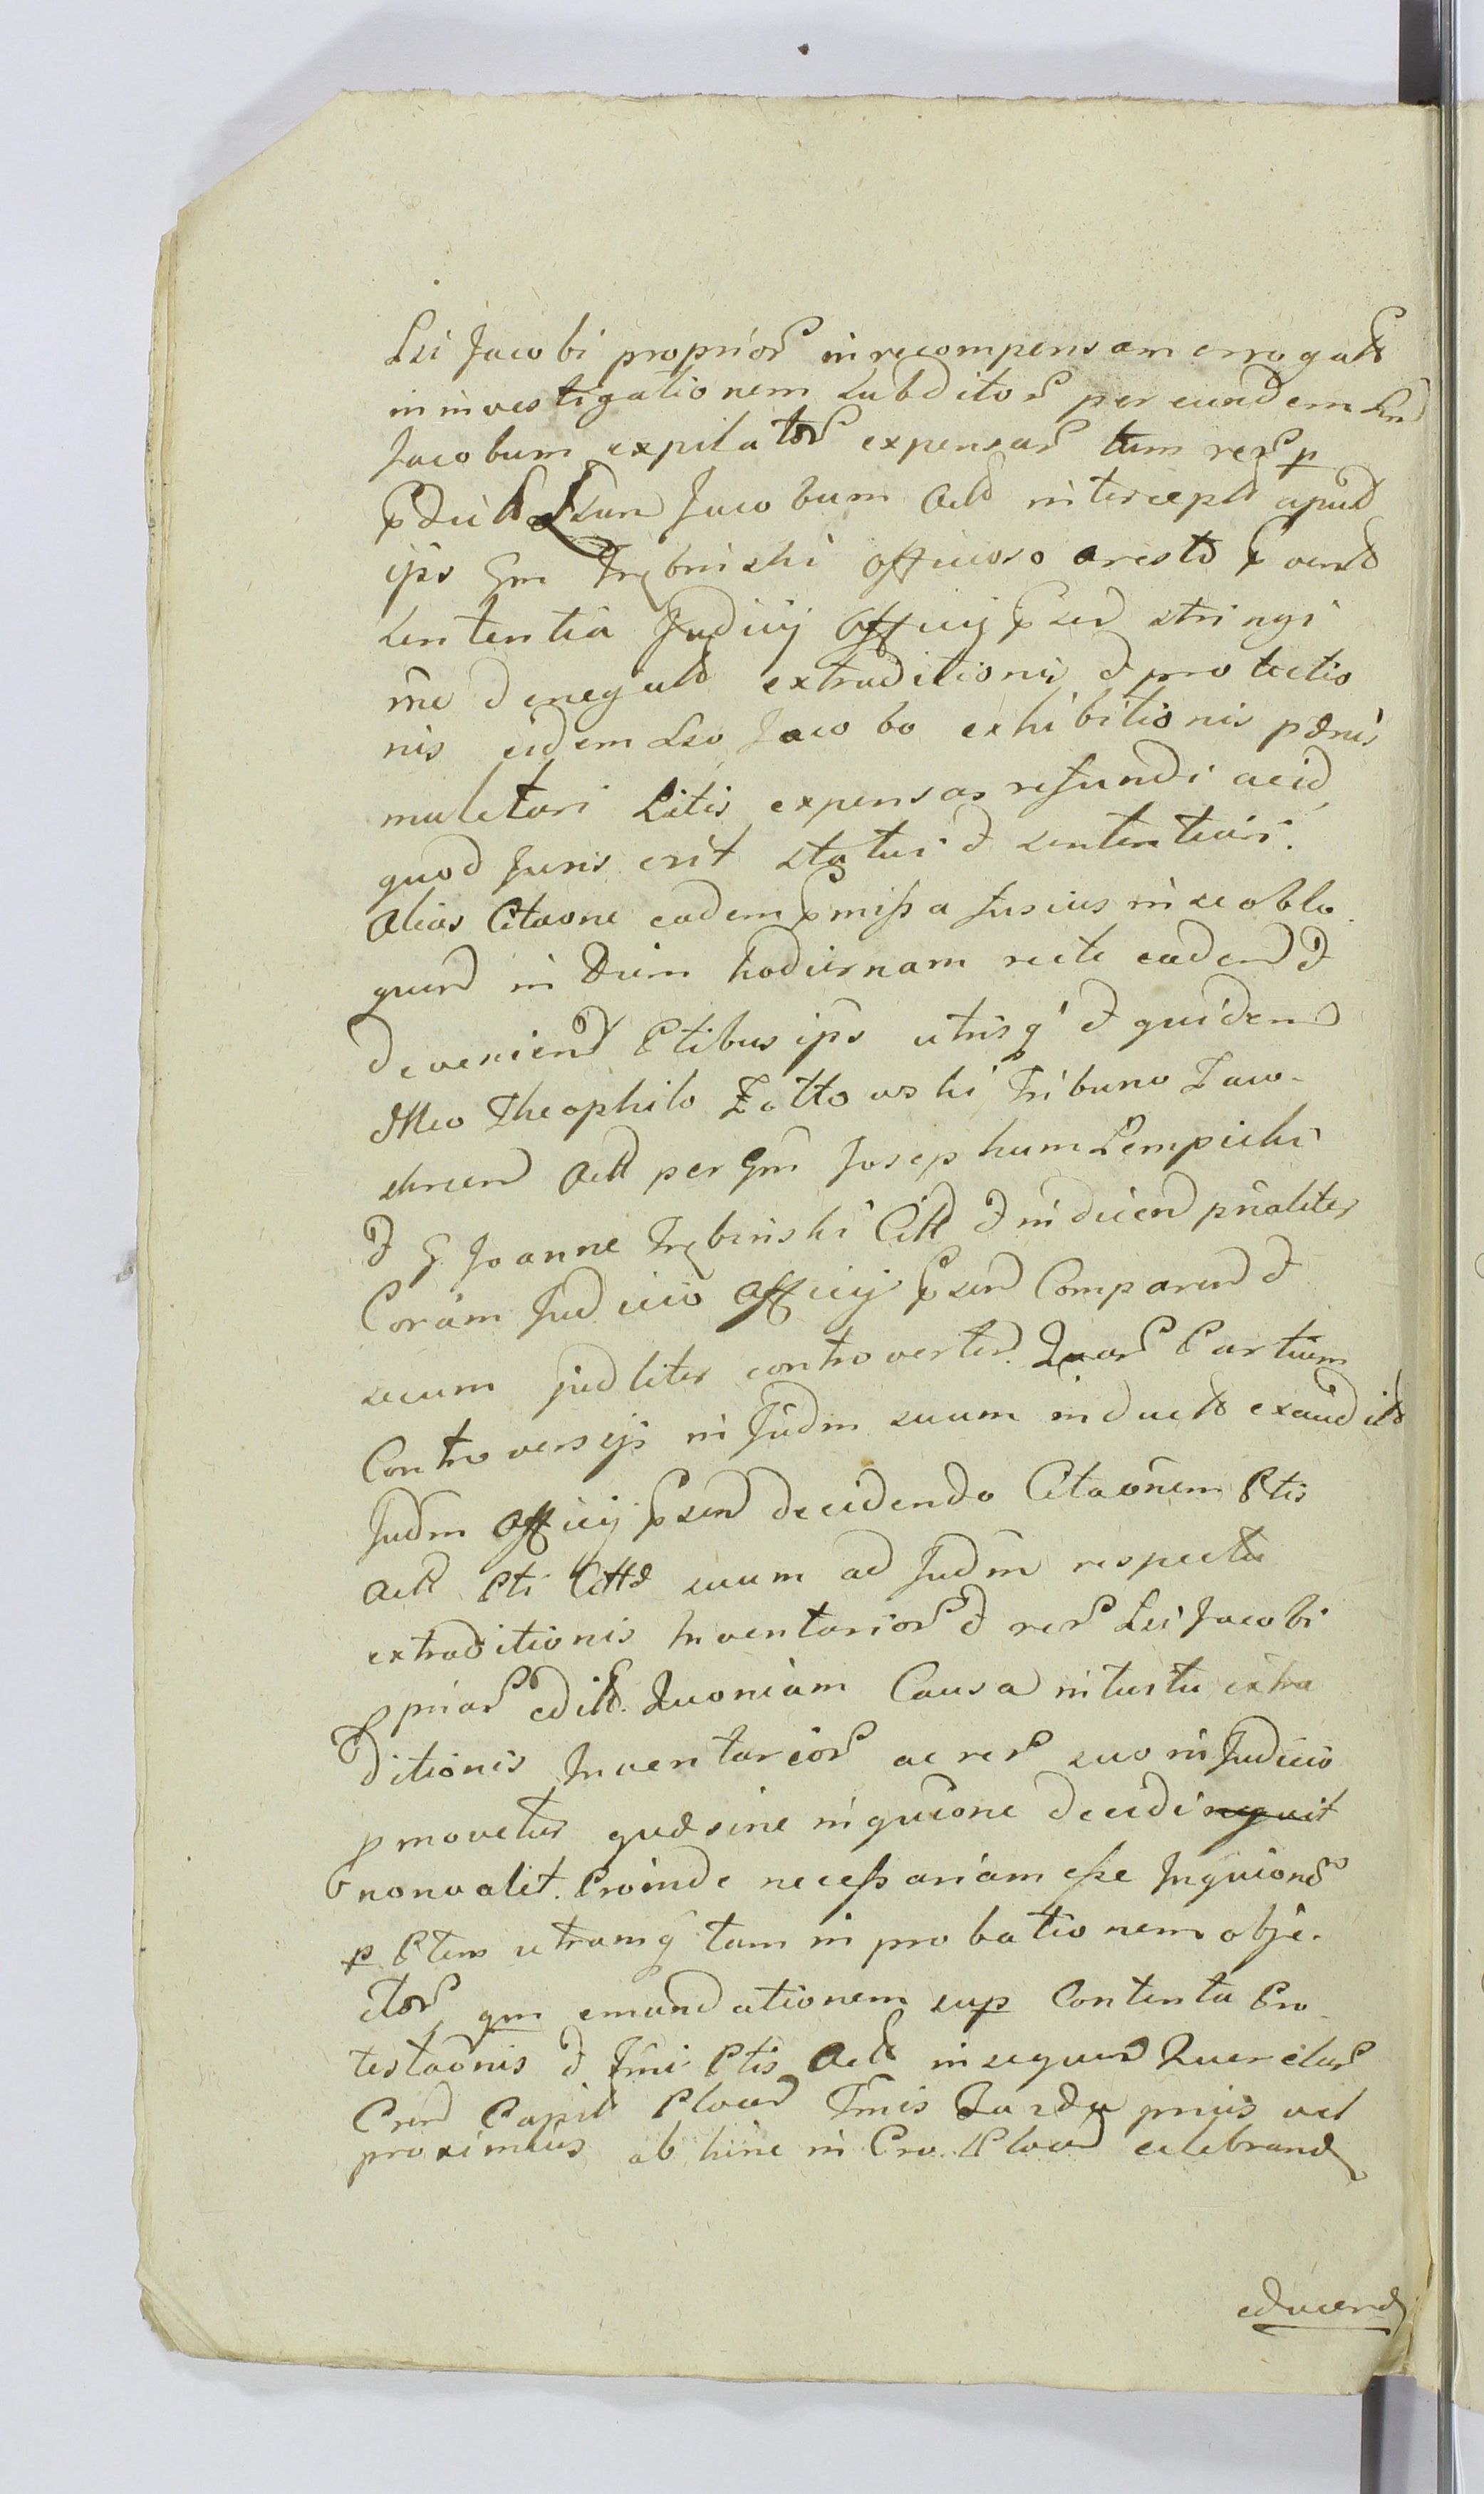 Lsi Jacobi proprior in recompensam errogatt
in investigationem subditor per eundem Lsm
Jacobum expilator expensar tum rer p
Lsum Jacobum Actt intercept apud
ips Gm Trębinski officioso aresto
Sententia Judicij Officij stringi
denegatt extraditionis & protectio
nis eidem Lso Jacobo exhibitionis pænis
mulctari Litis expensas refundi acid
quod Juris erit statui & sententiari.
Alias Citaone eadem missa fusius in se oblo
quend in Diem hodiernam recte cadend &
deveniend Ptibus ips utrisq & quidem
Mco Theophilo Zołtowski Tribuno Zaw-
skrcen Actt per Gm Josephum Lempicki
& G Joanne Trębinski Citt & indicend pnaliter
Coram Judicio Officij Comparend &
secum judliter controverten. Quar Partium
Controversijs in Judm suum induct exaudit
Judm Officij decidendo Citaonem Ptis
Actt Pti Citt suum ad Judm respectu
extraditionis Inventarior & rer Lsi Jacobi
priar editt. Quoniam Causa intuitu extra
ditionis Inventarior ac rer suo in Judicio
pmovetur quæ sine inquione decidi nequit
non valet. Proinde necessariam esse Inquionem
p Ptem utramq tam in probationem obje-
ctor qm emundationem sup Contenta Pro
testaonis & Ptis Actt insequend Querelar
Cren Capit Plocen Tmis prius vel
proximius ab hinc in Cro. Plocen celebrand
educend